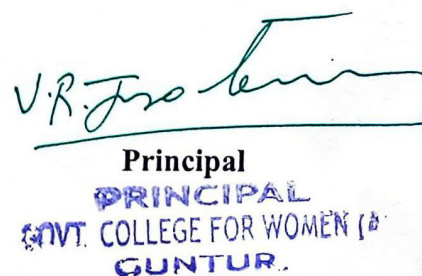 V.R.
Principal
PRINCIPAL
GOVT. COLLEGE FOR WOMEN (A
GUNTUR.